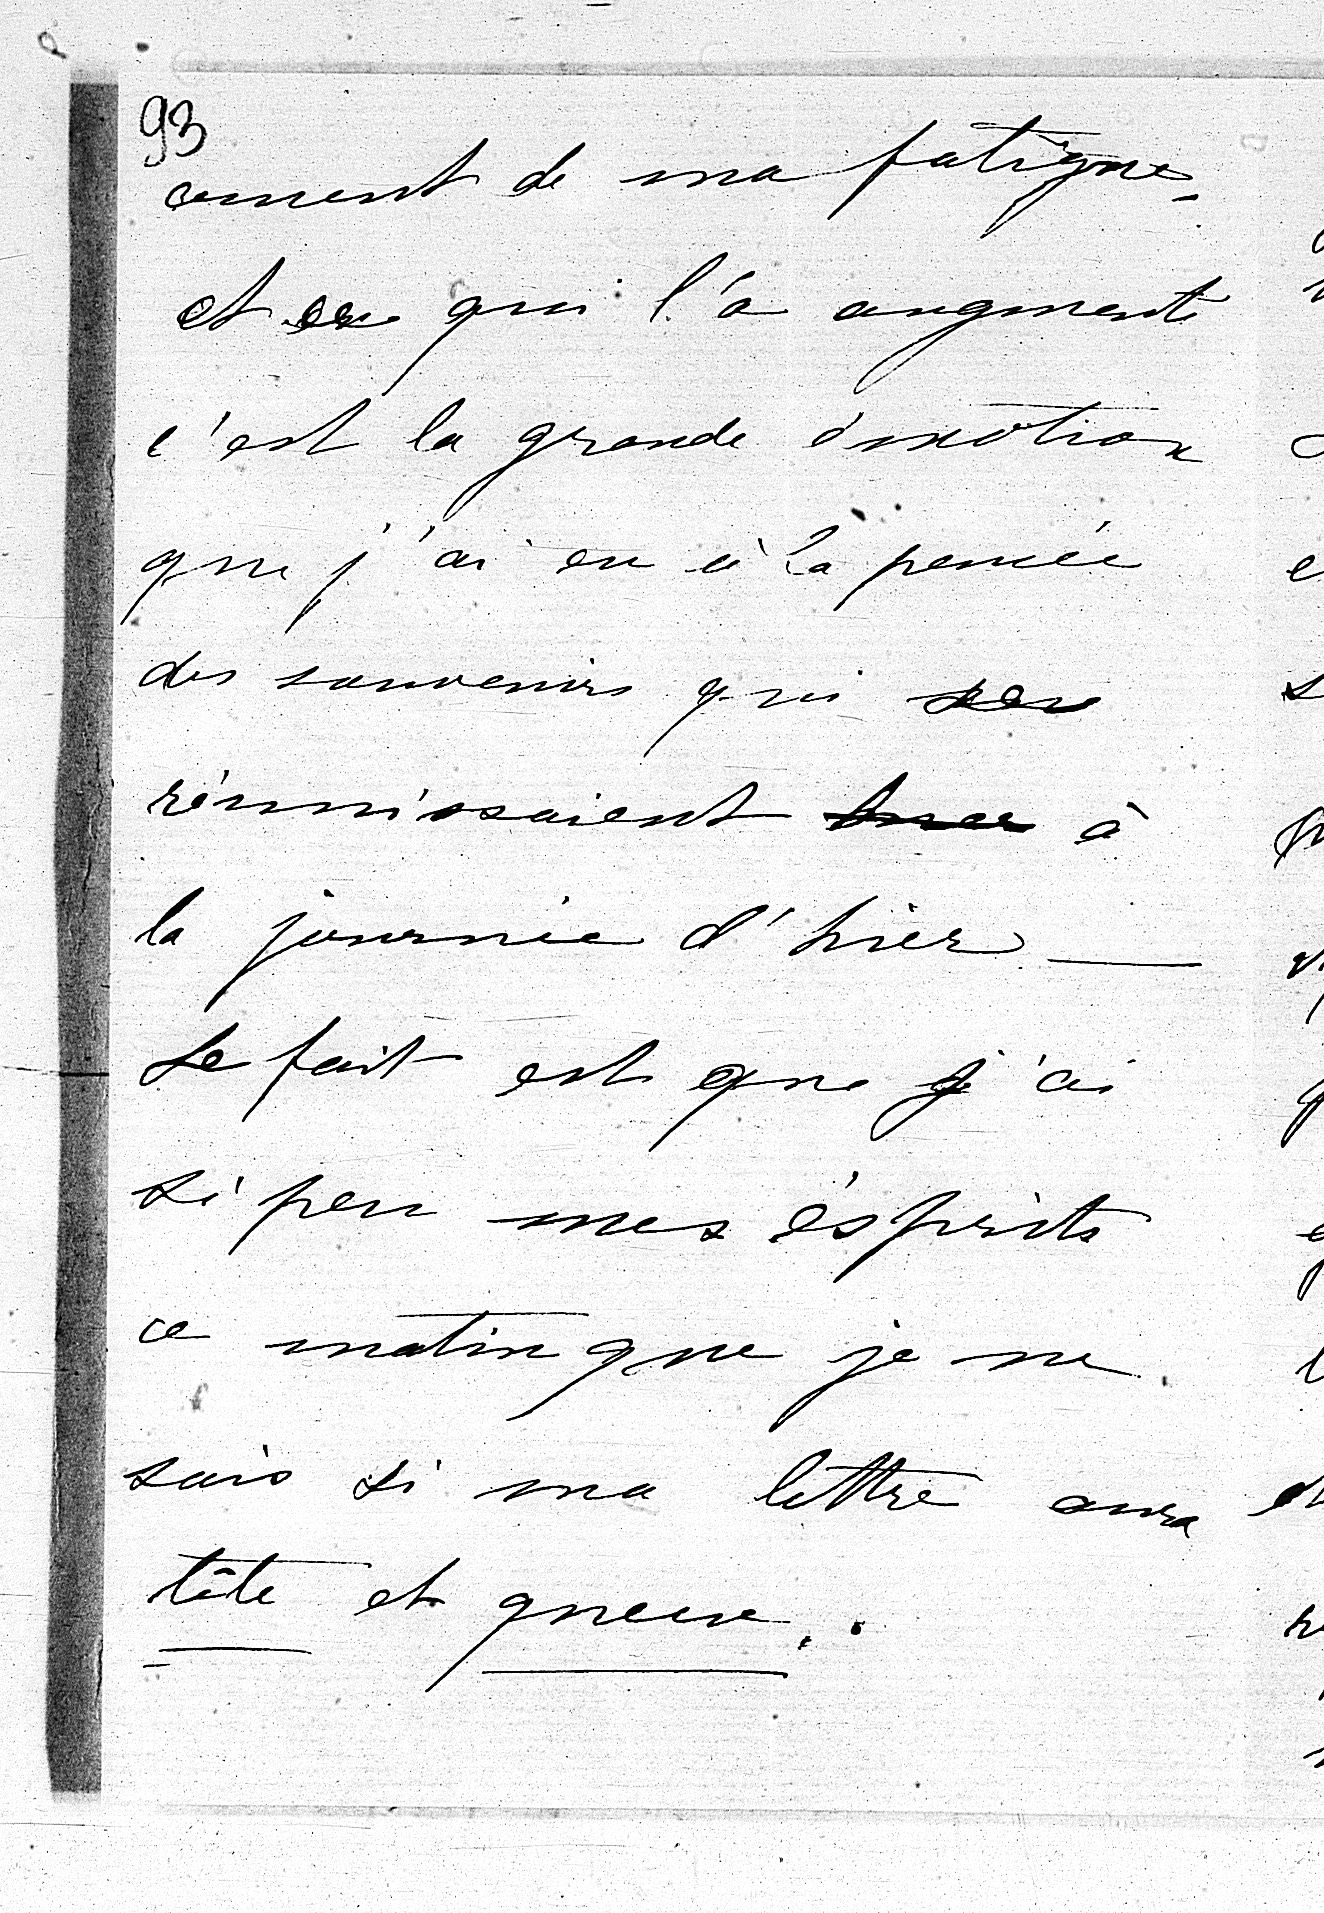 93
cement de ma fatigue.
et ce qui l'a augmenté
c'est la grande émotion
que j'ai eu à la pensée
des souvenirs qui se
réunissaient à
la journée d'hier —
Le fait est que j'ai
si peu mes ésprits
ce matin que je ne
sais si ma lettre aura
tête et queue..